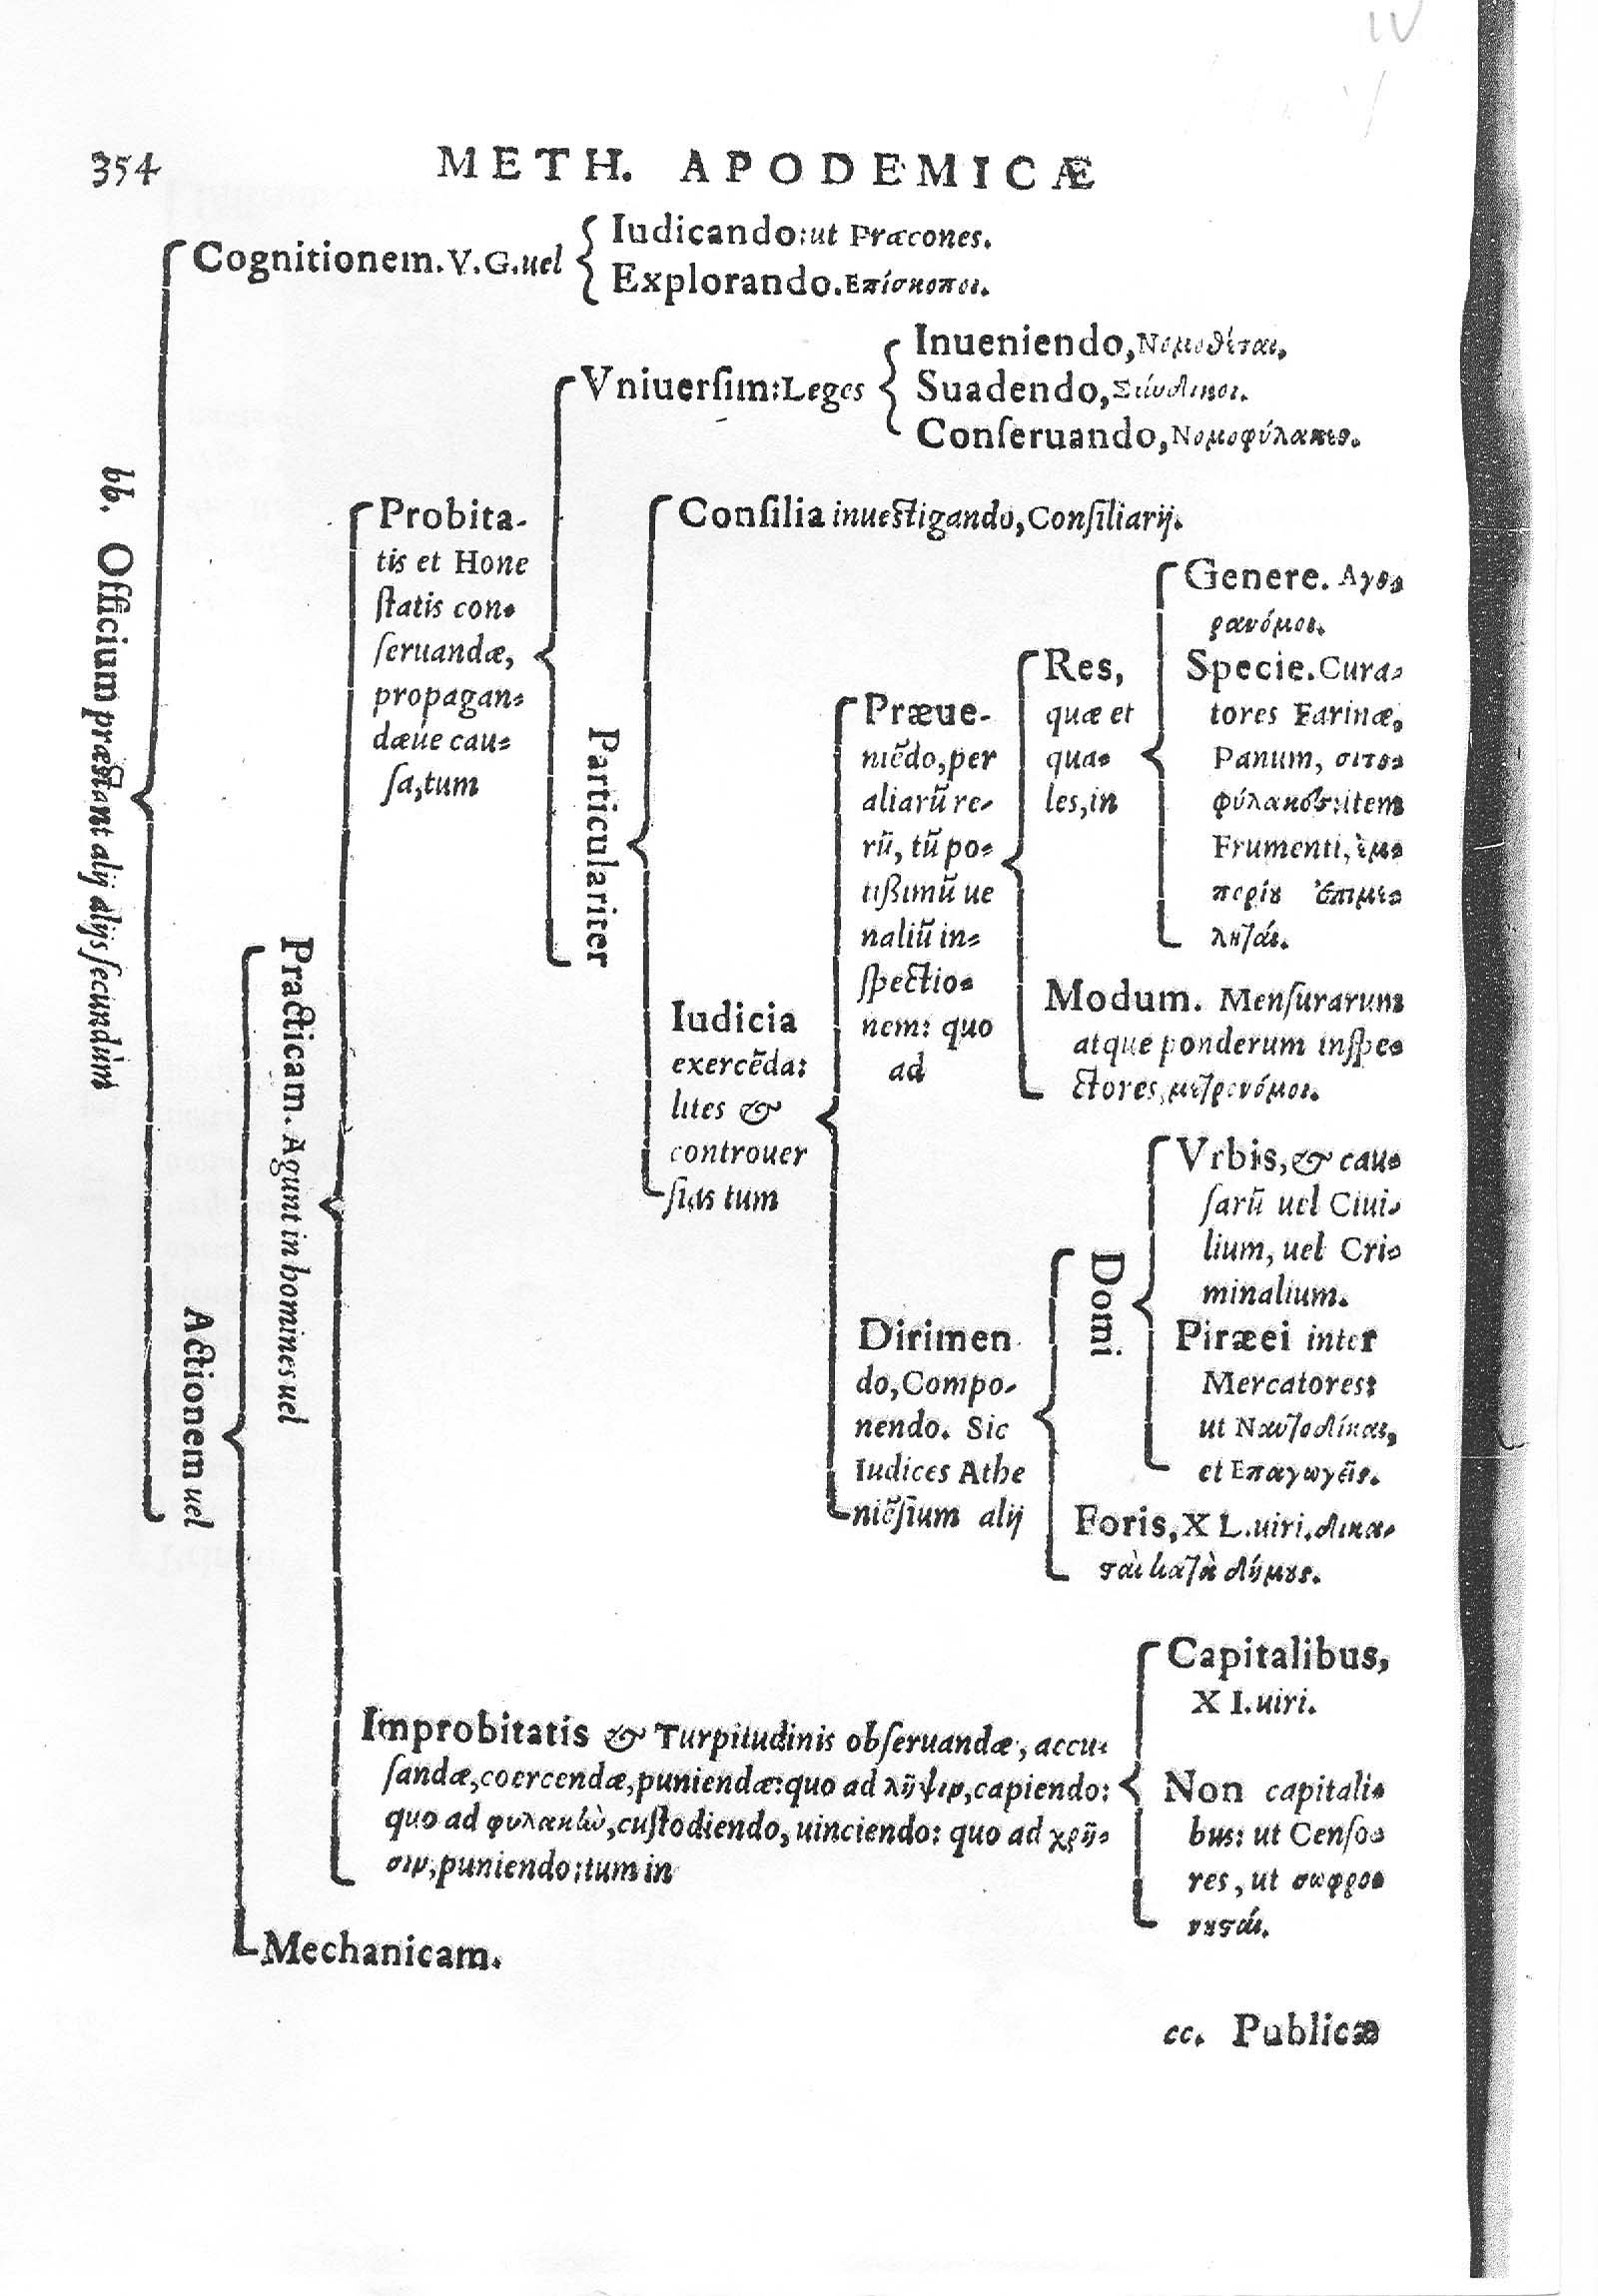 354
METH. APODEMICÆ
bb. Officium præstant alij alijs ſecundùm
Cognitionem. V. G. uel
Iudicando: ut Præcones.
Explorando. Επίσκοποι.
Actionem uel
Practicam. Agunt in homines uel
Probita-
tis et Hone
ſtatis con-
ſeruandæ,
propagan-
dæue cau-
ſa, tum
Vniuerſim: Leges
Inueniendo, Νομοθέται.
Suadendo, Σύνδικοι.
Conſeruando, Νομοφύλακες.
Particulariter
Conſilia inueſtigando, Conſiliarij.
Iudicia
exercẽda:
lites &
controuer
ſias tum
Præue-
niẽdo, per
aliarũ re-
rũ, tũ po-
tißimũ ue
naliũ in-
ſpectio-
nem: quo
ad
Res,
quæ et
qua-
les, in
Genere. Αγο-
ρανόμοι.
Specie. Cura-
tores Farinæ,
Panum, σιτο-
φύλακες: item
Frumenti, ἐμ-
πορίου ἐπιμε-
ληταί.
Modum. Menſurarum
atque ponderum inſpe-
ctores, μετρονόμοι.
Dirimen
do, Compo-
nendo. Sic
Iudices Athe
niẽſium alij
Domi
Vrbis, & cau-
ſarũ uel Ciui-
lium, uel Cri-
minalium.
Piræei inter
Mercatores:
ut Ναυτοδίκαι,
et Επαγωγεῖς.
Foris, XL. uiri, δικα-
ςαὶ κατὰ δήμους.
Improbitatis & Turpitudinis obſeruandæ, accu-
ſandæ, coercendæ, puniendæ: quo ad λῆψιν, capiendo:
quo ad φυλακὴν, cuſtodiendo, uinciendo: quo ad χρῆ-
σιν, puniendo: tum in
Capitalibus,
XI. uiri.
Non capitali-
bus: ut Cenſo-
res, ut σωφρο-
νιςαί.
Mechanicam.
cc. Publicæ